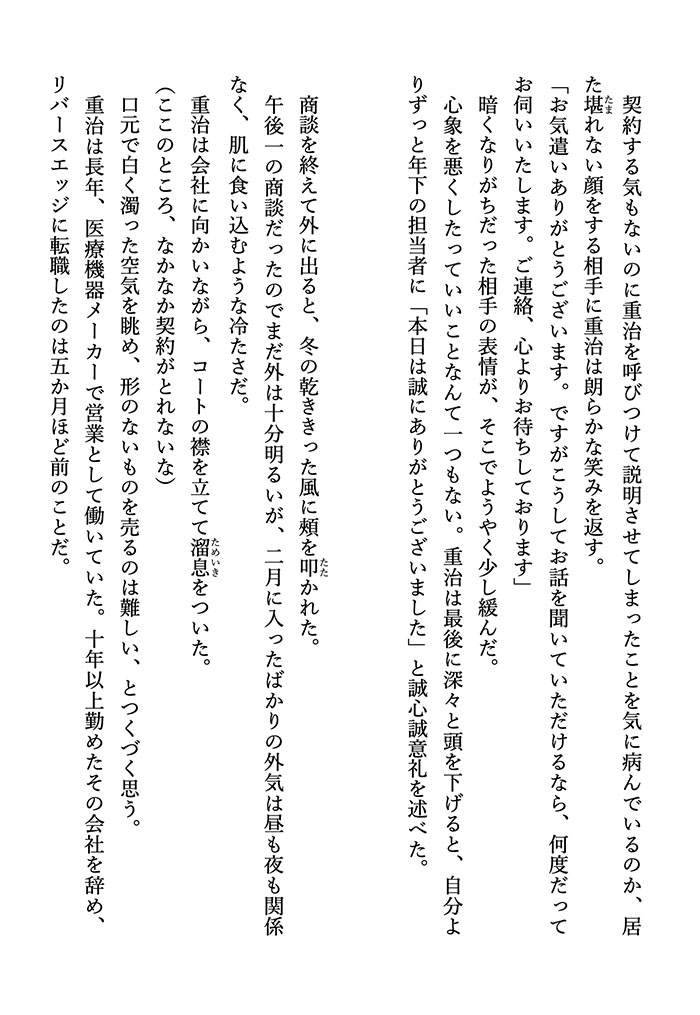 契約する気もないのに重治を呼びつけて説明させてしまったことを気に病んでいるのか、居
た堪れない顔をする相手に重治は朗らかな笑みを返す。
「お気遣いありがとうございます。ですがこうしてお話を聞いていただけるなら、何度だって
お伺いいたします。ご連絡、心よりお待ちしております」
　暗くなりがちだった相手の表情が、そこでようやく少し緩んだ。
　心象を悪くしたっていいことなんて一つもない。重治は最後に深々と頭を下げると、自分よ
りずっと年下の担当者に「本日は誠にありがとうございました」と誠心誠意礼を述べた。

　商談を終えて外に出ると、冬の乾ききった風に頰を叩かれた。
　午後一の商談だったのでまだ外は十分明るいが、二月に入ったばかりの外気は昼も夜も関係
なく、肌に食い込むような冷たさだ。
　重治は会社に向かいながら、コートの襟を立てて溜息をついた。
（ここのところ、なかなか契約がとれないな）
　口元で白く濁った空気を眺め、形のないものを売るのは難しい、とつくづく思う。
　重治は長年、医療機器メーカーで営業として働いていた。十年以上勤めたその会社を辞め、
リバースエッジに転職したのは五か月ほど前のことだ。